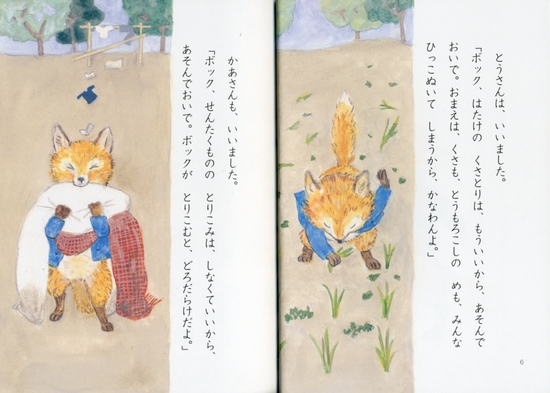 とうさんは、いいました。
「ボック、はたけの くさとりは、もういいから、あそんで
おいで。おまえは、くさも、とうもろこしの めも、みんな
ひっこぬいて しまうから、かなわんよ。」
6
かあさんも、いいました。
「ボック、せんたくものの とりこみは、しなくていいから、
あそんでおいで。ボックが とりこむと、どろだらけだよ。」